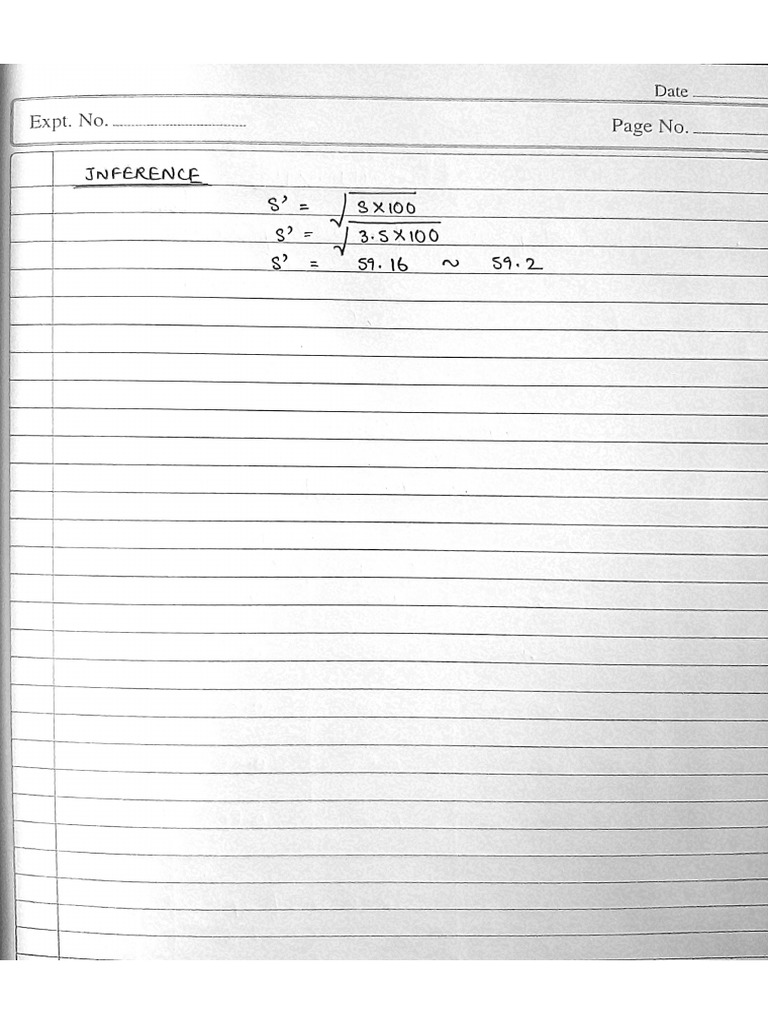 Date
Expt. No.
Page No.
INFERENCE
S' = √S×100
S' = √3.5×100
S' = 59.16 ~ 59.2